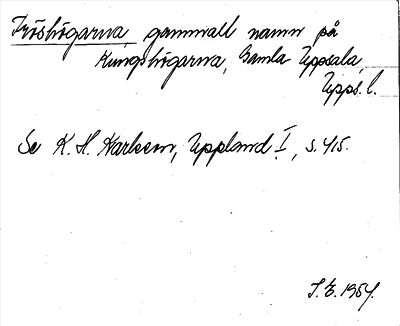 Fröshögarna, gammalt namn på
Kungshögarna, Gamla Uppsala,
Upps. l.
Se K. H. Karlsson, Uppland I, s. 415.
S. E. 1954.